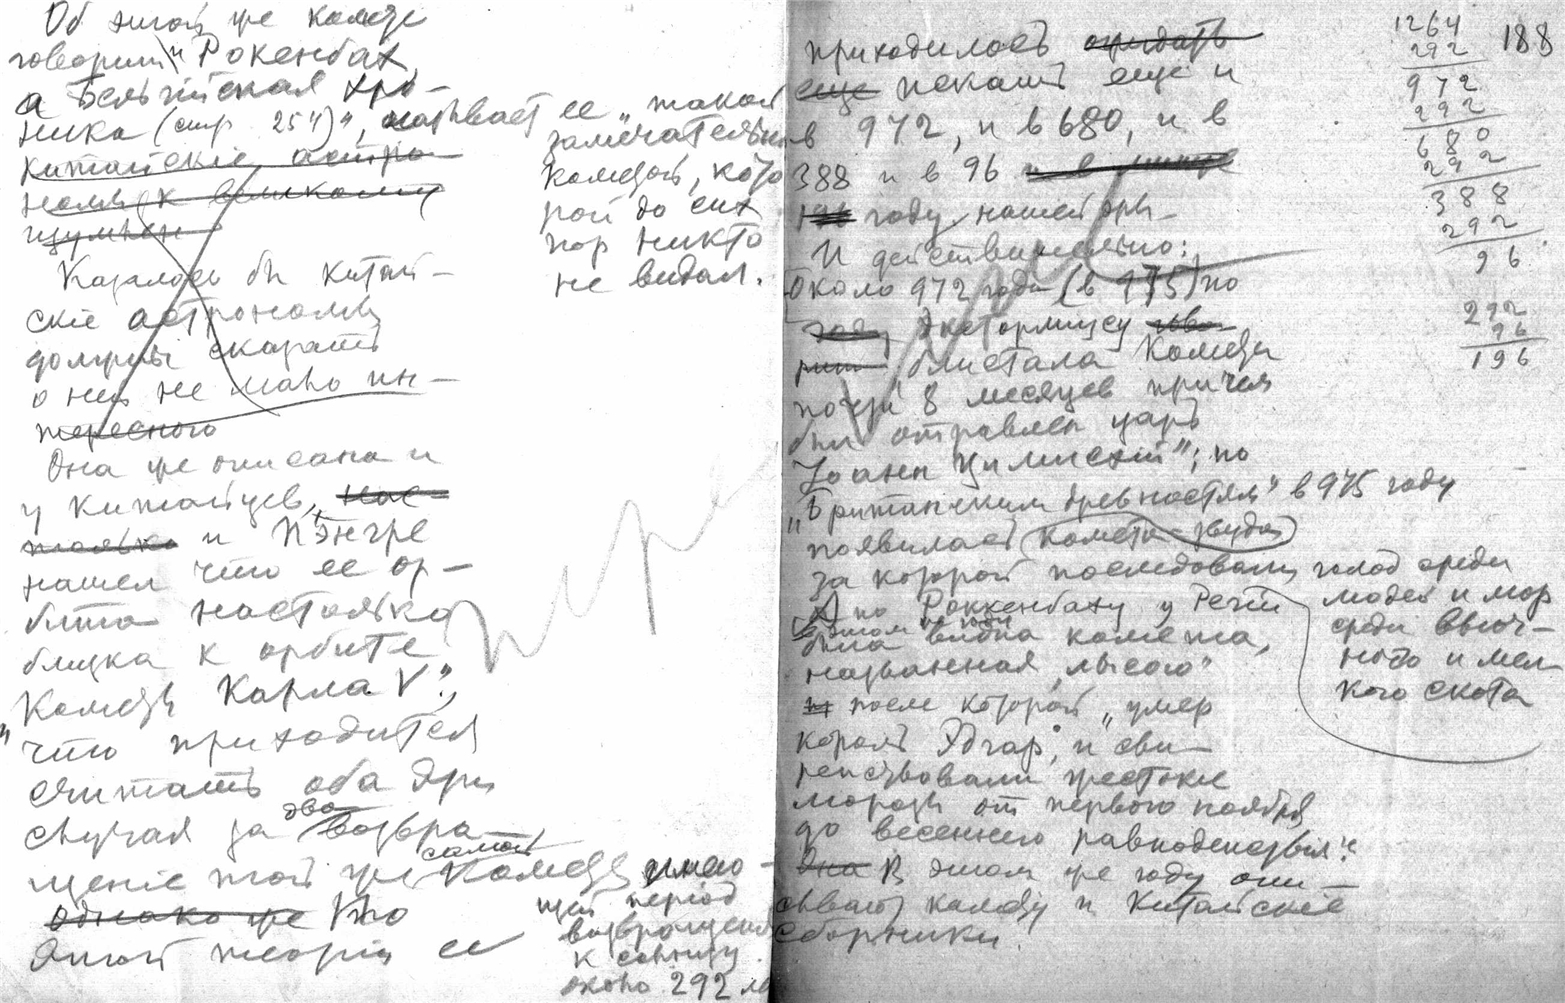 Об этой же комете
говорит и Рокенбах,
а Бельгийская хро-
ника (стр 254)", называет ее „такой
замечательн
кометой, кото
рой до сих
пор никто
не видал."
Китайскіе астро-
номы к великому
изумлен
Казалось бы китай-
скіе астрономы
должны сказать
о ней не мало ин-
тересного
Она же описана и
у Китайцев, нас-
только и Пэнгре
нашел что ее ор-
бита настолько
близка к орбите
Кометы Карла V",
"что приходится
считать оба эти
случая за два возвра-
щеніе той же самой Кометы имею-
щей період
возвращения
к солнцу
около 292 ле
Однако же По
этой теоріи ее
188
приходилось ожидать
еще искать еще и
в 972, и в 680, и в
388 и в 96 и в
196 году нашей эры-
И действительно:
Около 972 года (в 975) по
году Экстормиусу гово-
рит блистала Комета
почти 8 месяцев причем
был отравлен царь
Іоанн Цимисхій"; по
„Британским древностям" в 975 году
появилась Комета-звезда
за которой последовали голод среди
людей и мор
среди вьюч-
ного и мел
кого скота
А по Роккенбаху у Речи
в этом же году
была видна комета,
названная „лысого"
после которой „умер
король Эдгар", и сви-
репствовали жестокие
морозы от первого ноября
до весеннего равноденствия".
Она В этом же году опи-
сывают комету и Китайскіе
сборники.
1264
292
972
292
680
292
388
292
96
292
96
196